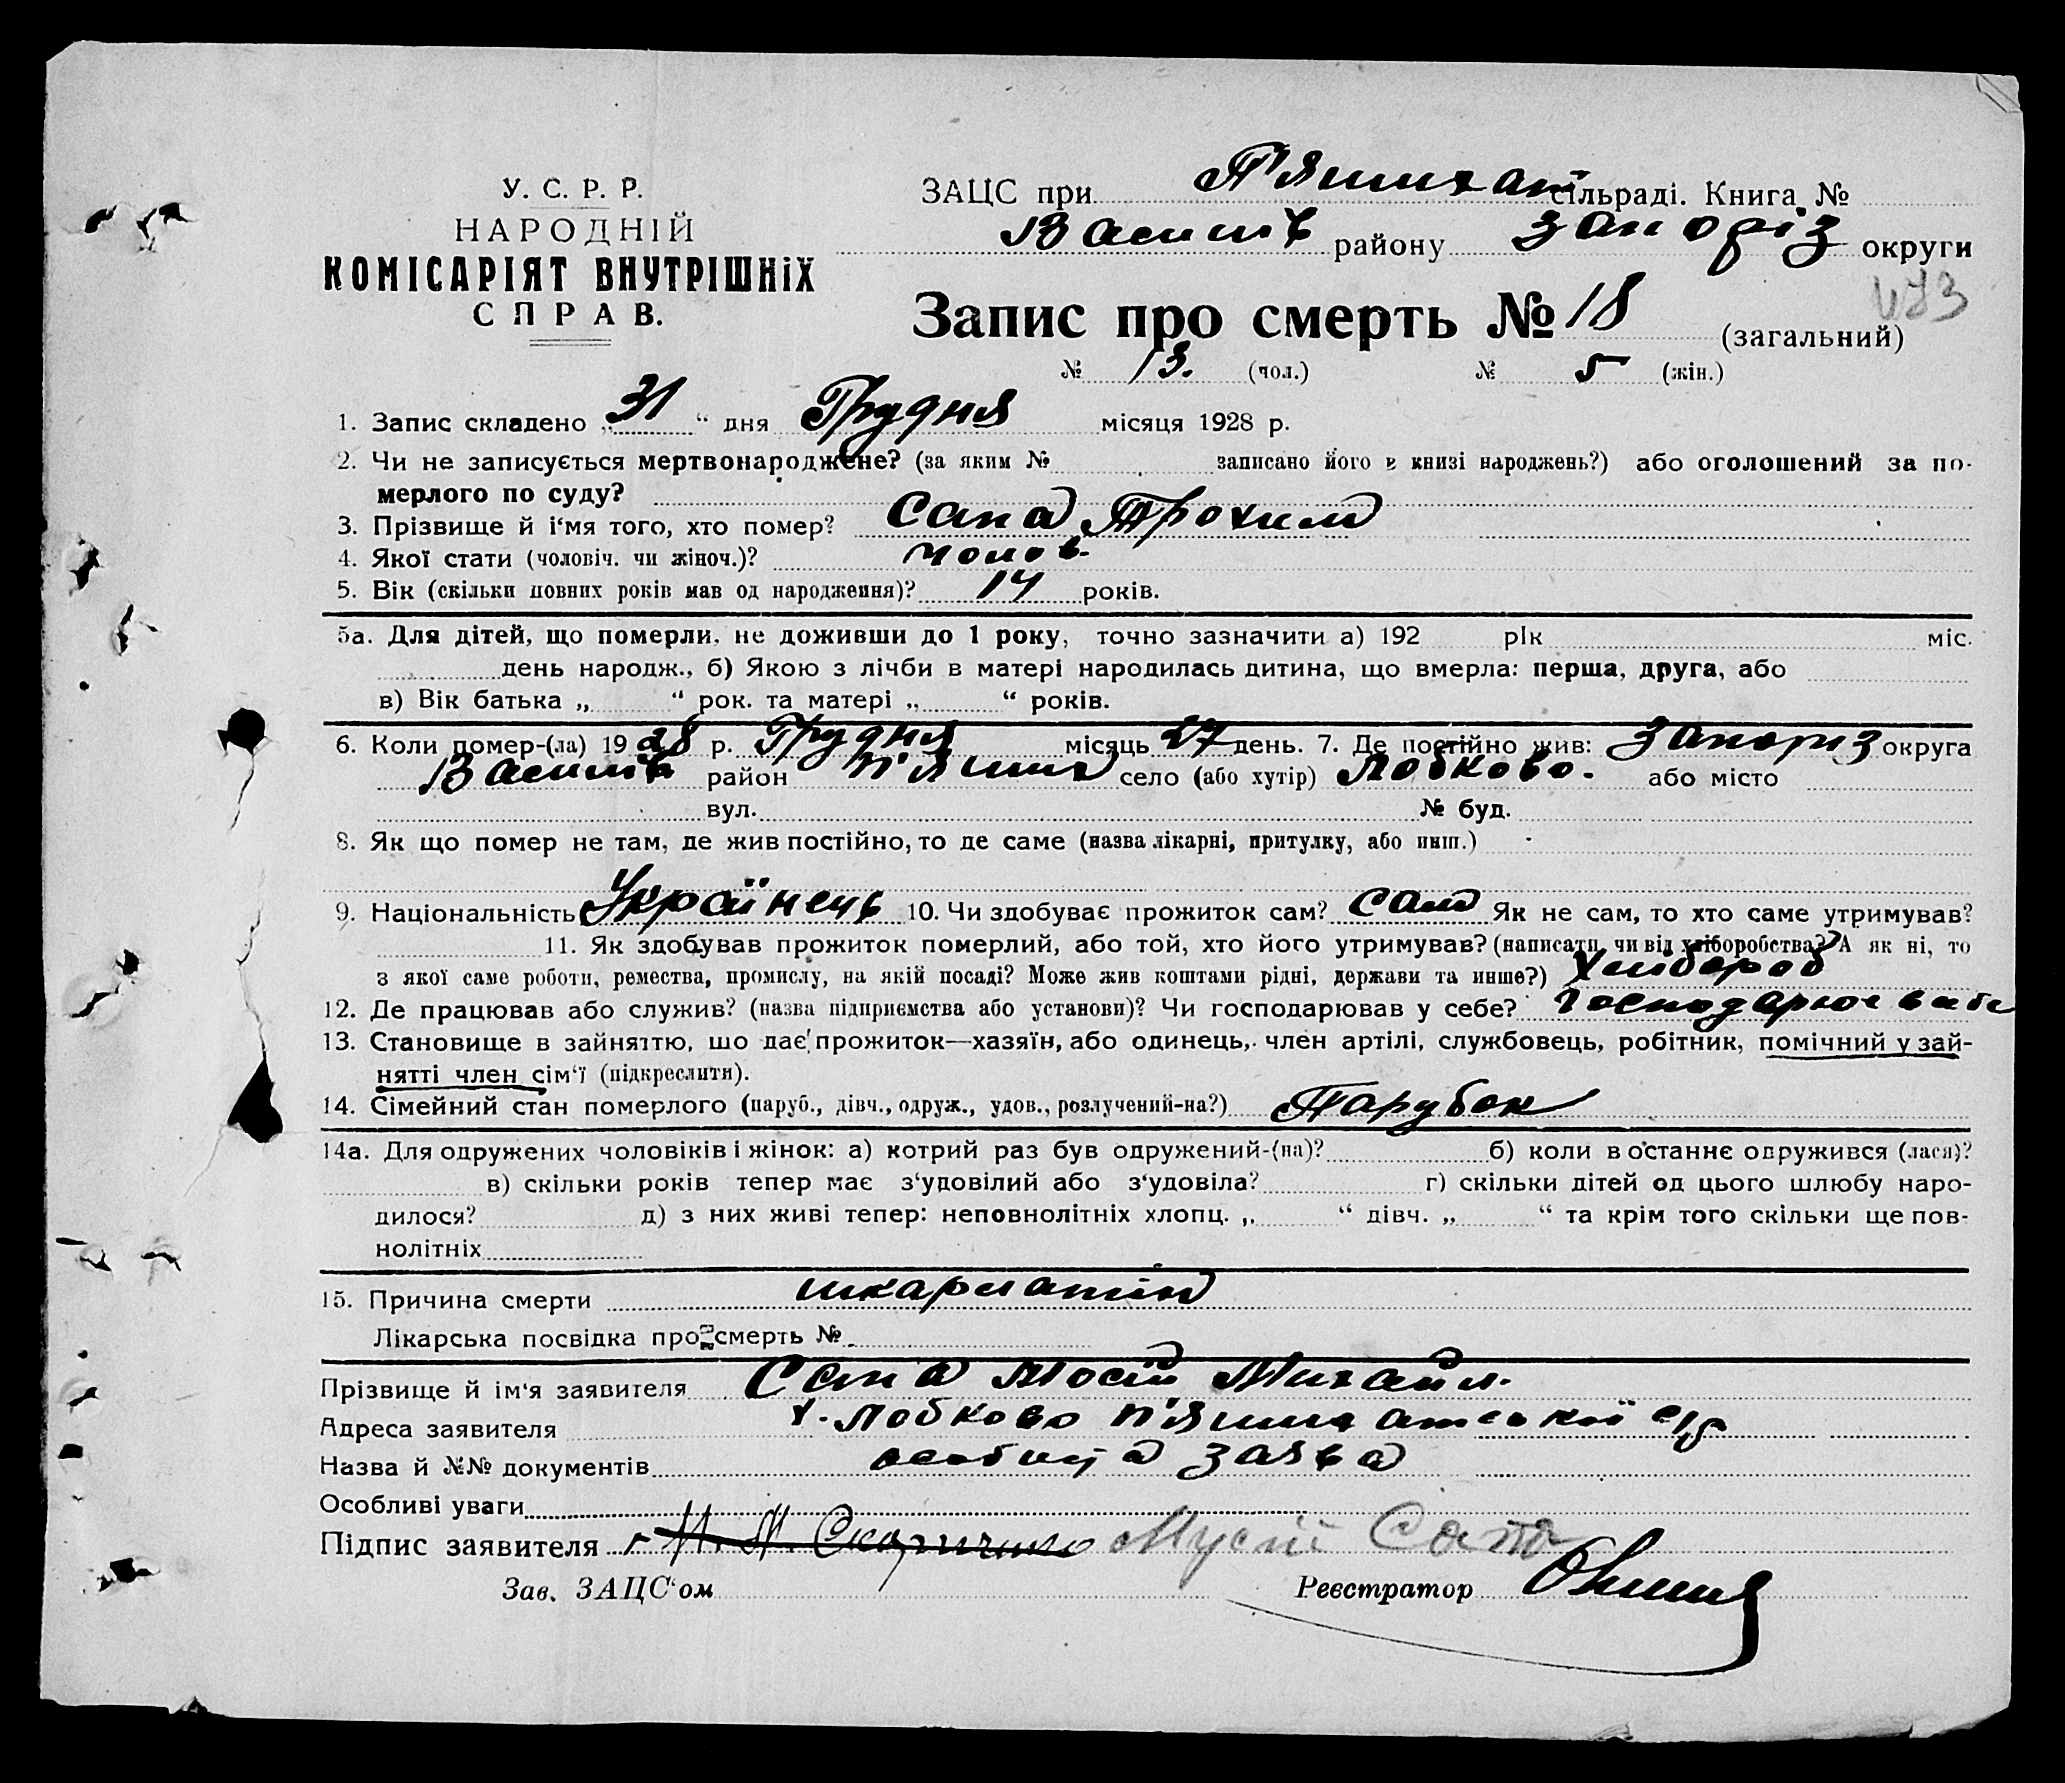 У. С. Р. Р.
НАРОДНІЙ
КОМІСАРІЯТ ВНУТРІШНІХ
СПРАВ.
ЗАЦС при П'ятихат сільраді. Книга №
Василів району Запоріз округи
Запис про смерть № 18 (загальний)
№ 13. (чол.) № 5 (жін.)
1. Запис складено „31“ дня Грудня місяця 1928 р.
2. Чи не записується мертвонароджене? (за яким № записано його в книзі народжень?) або оголошений за по-
мерлого по суду?
3. Прізвище й і'мя того, хто помер? Сапа Трохим
4. Якої стати (чоловіч. чи жіноч.)? чолов.
5. Вік (скільки повних років мав од народження)? 14 років.
5а. Для дітей, що померли, не доживши до 1 року, точно зазначити а) 192 рік міс.
день народж., б) Якою з лічби в матері народилась дитина, що вмерла: перша, друга, або
в) Вік батька „ “ рок. та матері „ “ років.
6. Коли помер-(ла) 1928 р. Грудня місяць 27 день. 7. Де постійно жив: Запоріз округа
Василів район П'ятих село (або хутір) Лобково. або місто
вул. № буд.
8. Як що помер не там, де жив постійно, то де саме (назва лікарні, притулку, або инш.)
9. Національність Українець 10. Чи здобуває прожиток сам? сам Як не сам, то хто саме утримував?
11. Як здобував прожиток померлий, або той, хто його утримував? (написати, чи від хліборобства? А як ні, то
з якої саме роботи, ремества, промислу, на якій посаді? Може жив коштами рідні, держави та инше?) Хлібороб
12. Де працював або служив? (назва підприємства або установи)? Чи господарював у себе? Господарює в себе
13. Становище в зайняттю, шо дає прожиток—хазяїн, або одинець, член артілі, службовець, робітник, помічний у зай-
нятті член сім'ї (підкреслити).
14. Сімейний стан померлого (паруб., дівч., одруж., удов., розлучений-на?) Парубок
14а. Для одружених чоловіків і жінок: а) котрий раз був одружений-(на)? б) коли в останнє одружився (лася)?
в) скільки років тепер має з'удовілий або з'удовіла? г) скільки дітей од цього шлюбу наро-
дилося? д) з них живі тепер: неповнолітніх хлопц. „ “ дівч. „ “ та крім того скільки ще пов-
нолітніх
15. Причина смерти шкарлатін
Лікарська посвідка про смерть №
Прізвище й ім'я заявителя Сапа Мосій Михайл.
Адреса заявителя х. Лобково П'ятихатської с/р
Назва й №№ документів особиста заява
Особливі уваги
Підпис заявителя Мусій Сапа
Зав. ЗАЦС'ом Реєстратор